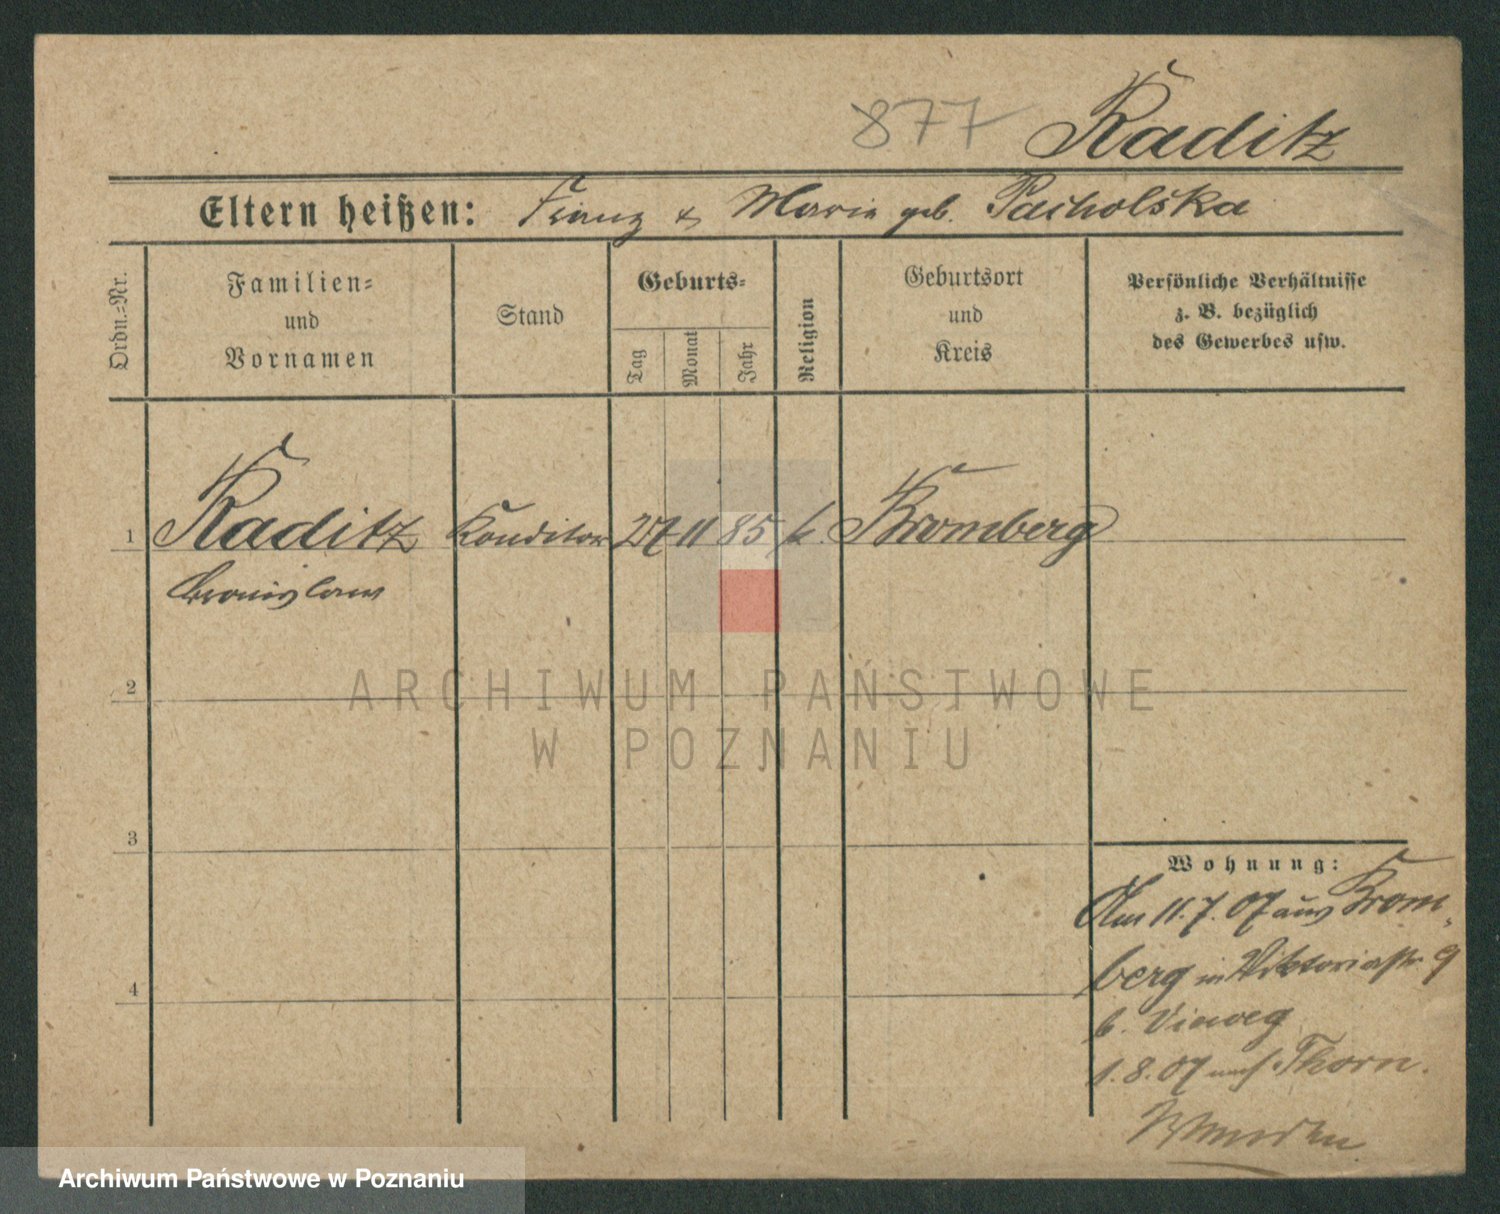 877 Raditz
Eltern heißen: Franz & Maria geb. Pacholska
Ordn.=Nr.
Familien=
und
Vornamen
Stand
Geburts=
Tag
Monat
Jahr
Religion
Geburtsort
und
Kreis
Persönliche Verhältnisse
z. B. bezüglich
des Gewerbes usw.
1 Raditz Konditor 27 11 85 k. Bromberg
Bronislaus
2
3
4
Wohnung:
Am 11.7.07 aus Brom-
berg in Viktoriastr. 9
b. Vieweg
1.8.07 nach Thorn.
ARCHIWUM PAŃSTWOWE
W POZNANIU
Archiwum Państwowe w Poznaniu